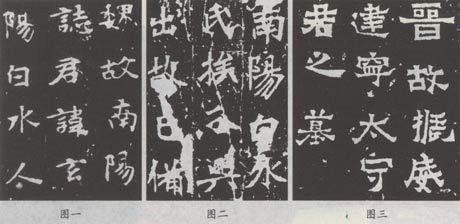 魏故南陽
誌君諱玄
陽白水人
图一
南陽白水
氏族興
出故備
图二
晉故振威
建寧太守
君之墓
图三